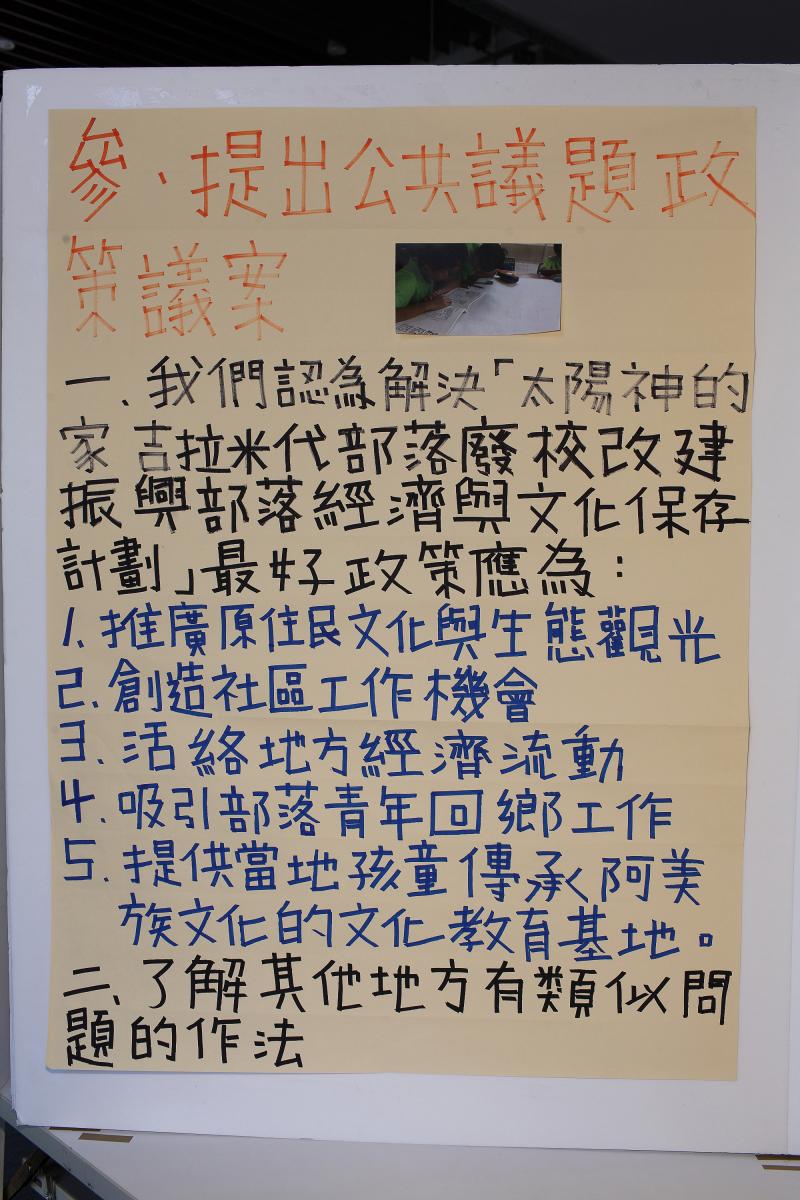 參、提出公共議題政
策議案
一、我們認為解決「太陽神的
家 吉拉米代部落廢校改建
振興部落經濟與文化保存
計劃」最好政策應為：
1.推廣原住民文化與生態觀光
2.創造社區工作機會
3.活絡地方經濟流動
4.吸引部落青年回鄉工作
5.提供當地孩童傳承阿美
族文化的文化教育基地。
二、了解其他地方有類似問
題的作法